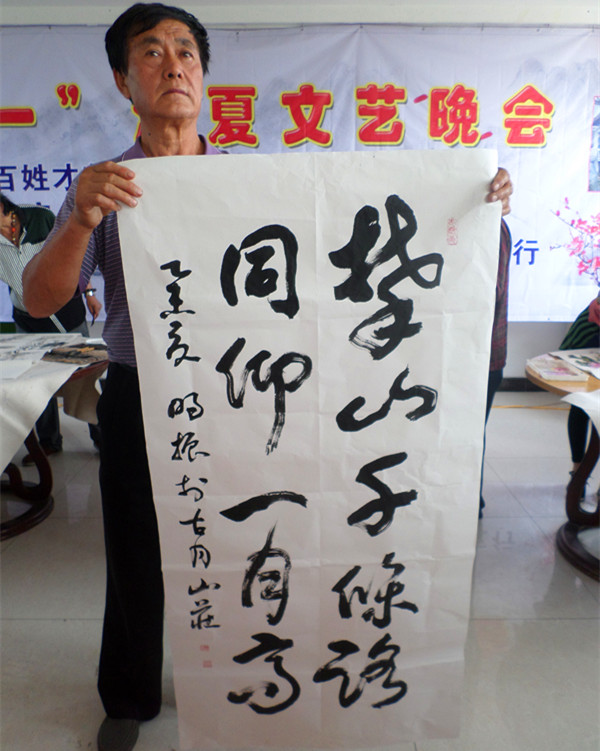 一” 夏文艺晚会
百姓才
行
攀山千條路
同仰一月高
乙未夏 明振於古月山莊